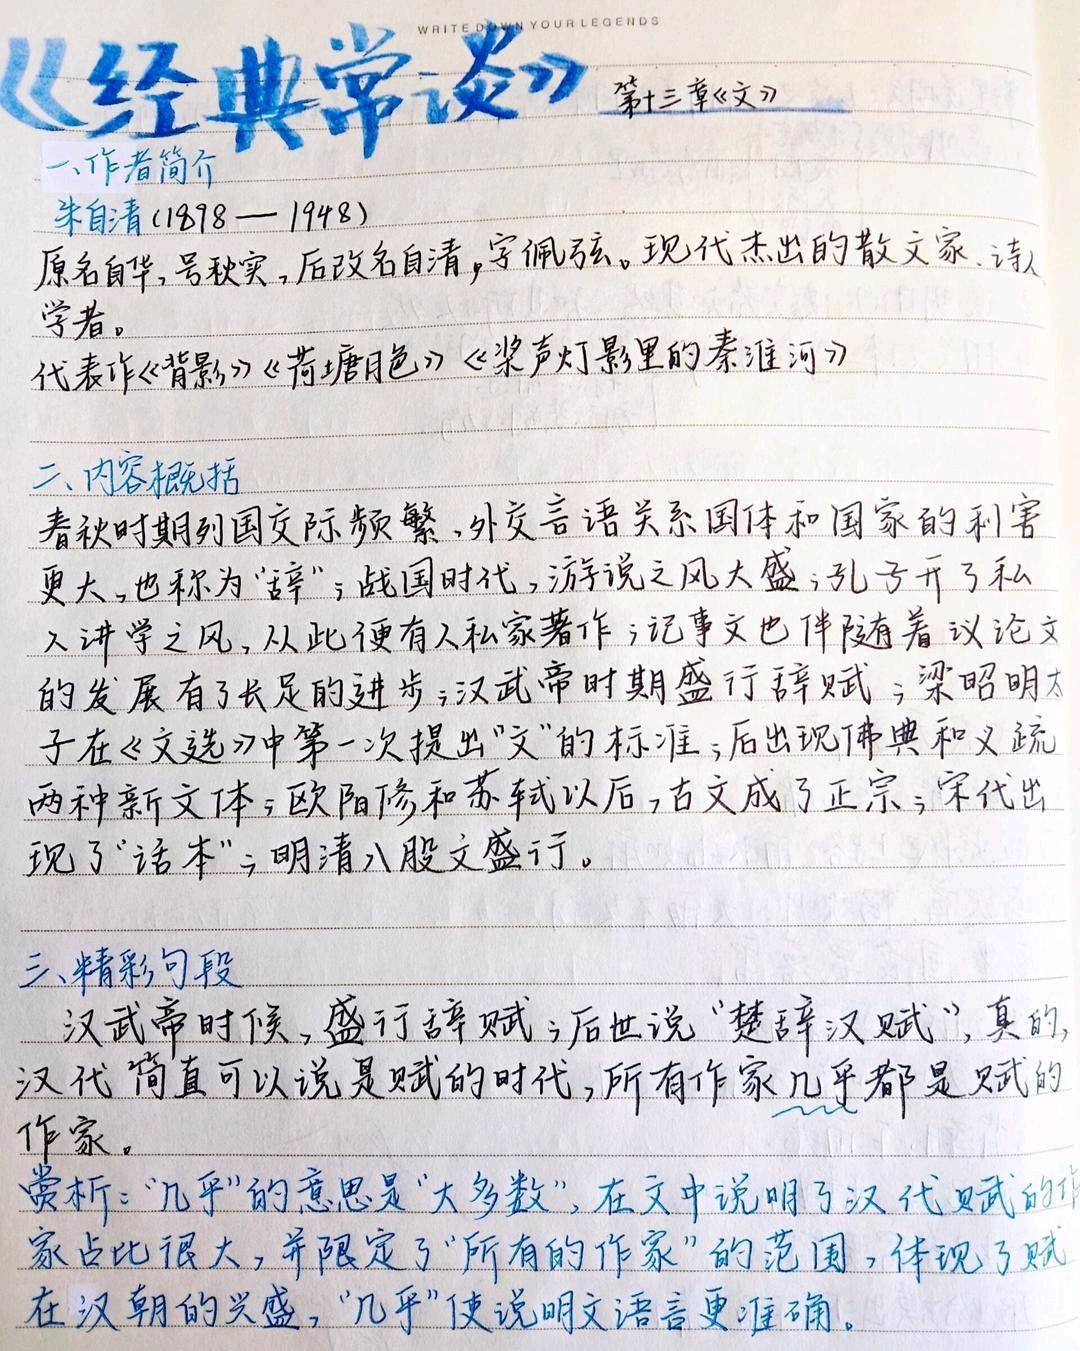 WRITE DOWN YOUR LEGENDS
《经典常谈》 第十三章《文》
一、作者简介
朱自清(1898—1948)
原名自华,号秋实,后改名自清,字佩弦。现代杰出的散文家、诗人
学者。
代表作《背影》《荷塘月色》《桨声灯影里的秦淮河》
二、内容概括
春秋时期列国交际频繁,外交言语关系国体和国家的利害
更大,也称为“辞”;战国时代,游说之风大盛;孔子开了私
人讲学之风,从此便有人私家著作;记事文也伴随着议论文
的发展有了长足的进步;汉武帝时期盛行辞赋;梁昭明太
子在《文选》中第一次提出“文”的标准;后出现佛典和义疏
两种新文体;欧阳修和苏轼以后,古文成了正宗;宋代出
现了“话本”;明清八股文盛行。
三、精彩句段
汉武帝时候,盛行辞赋;后世说“楚辞汉赋”,真的,
汉代简直可以说是赋的时代,所有作家几乎都是赋的
作家。
赏析:“几乎”的意思是“大多数”,在文中说明了汉代赋的作
家占比很大,并限定了“所有的作家”的范围,体现了赋
在汉朝的兴盛,“几乎”使说明文语言更准确。